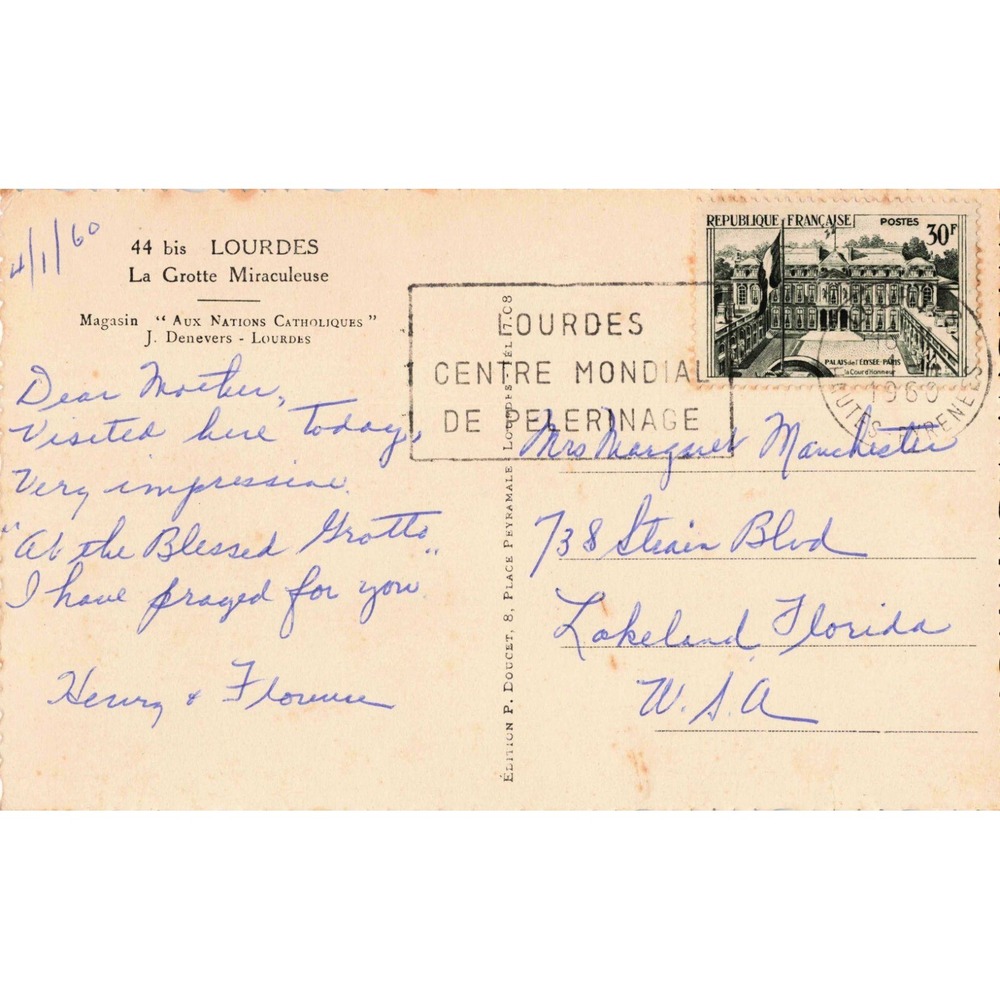 4/1/60
44 bis LOURDES
La Grotte Miraculeuse
Magasin "AUX NATIONS CATHOLIQUES"
J. DENEVERS - LOURDES
Dear Mother,
Visited here today,
Very impressive.
"At the Blessed Grotto"
I have prayed for you.
Henry & Florence
ÉDITION P. DOUCET, 8, PLACE PEYRAMALE - LOURDES - TÉL. 7.08
LOURDES
CENTRE MONDIAL
DE PELERINAGE
REPUBLIQUE FRANÇAISE POSTES 30F
PALAIS de l'ÉLYSÉE-PARIS
la Cour d'Honneur
1960
HUTES-PYRENEES
Mrs Margaret Manchester
738 Strain Blvd
Lakeland, Florida
U.S.A